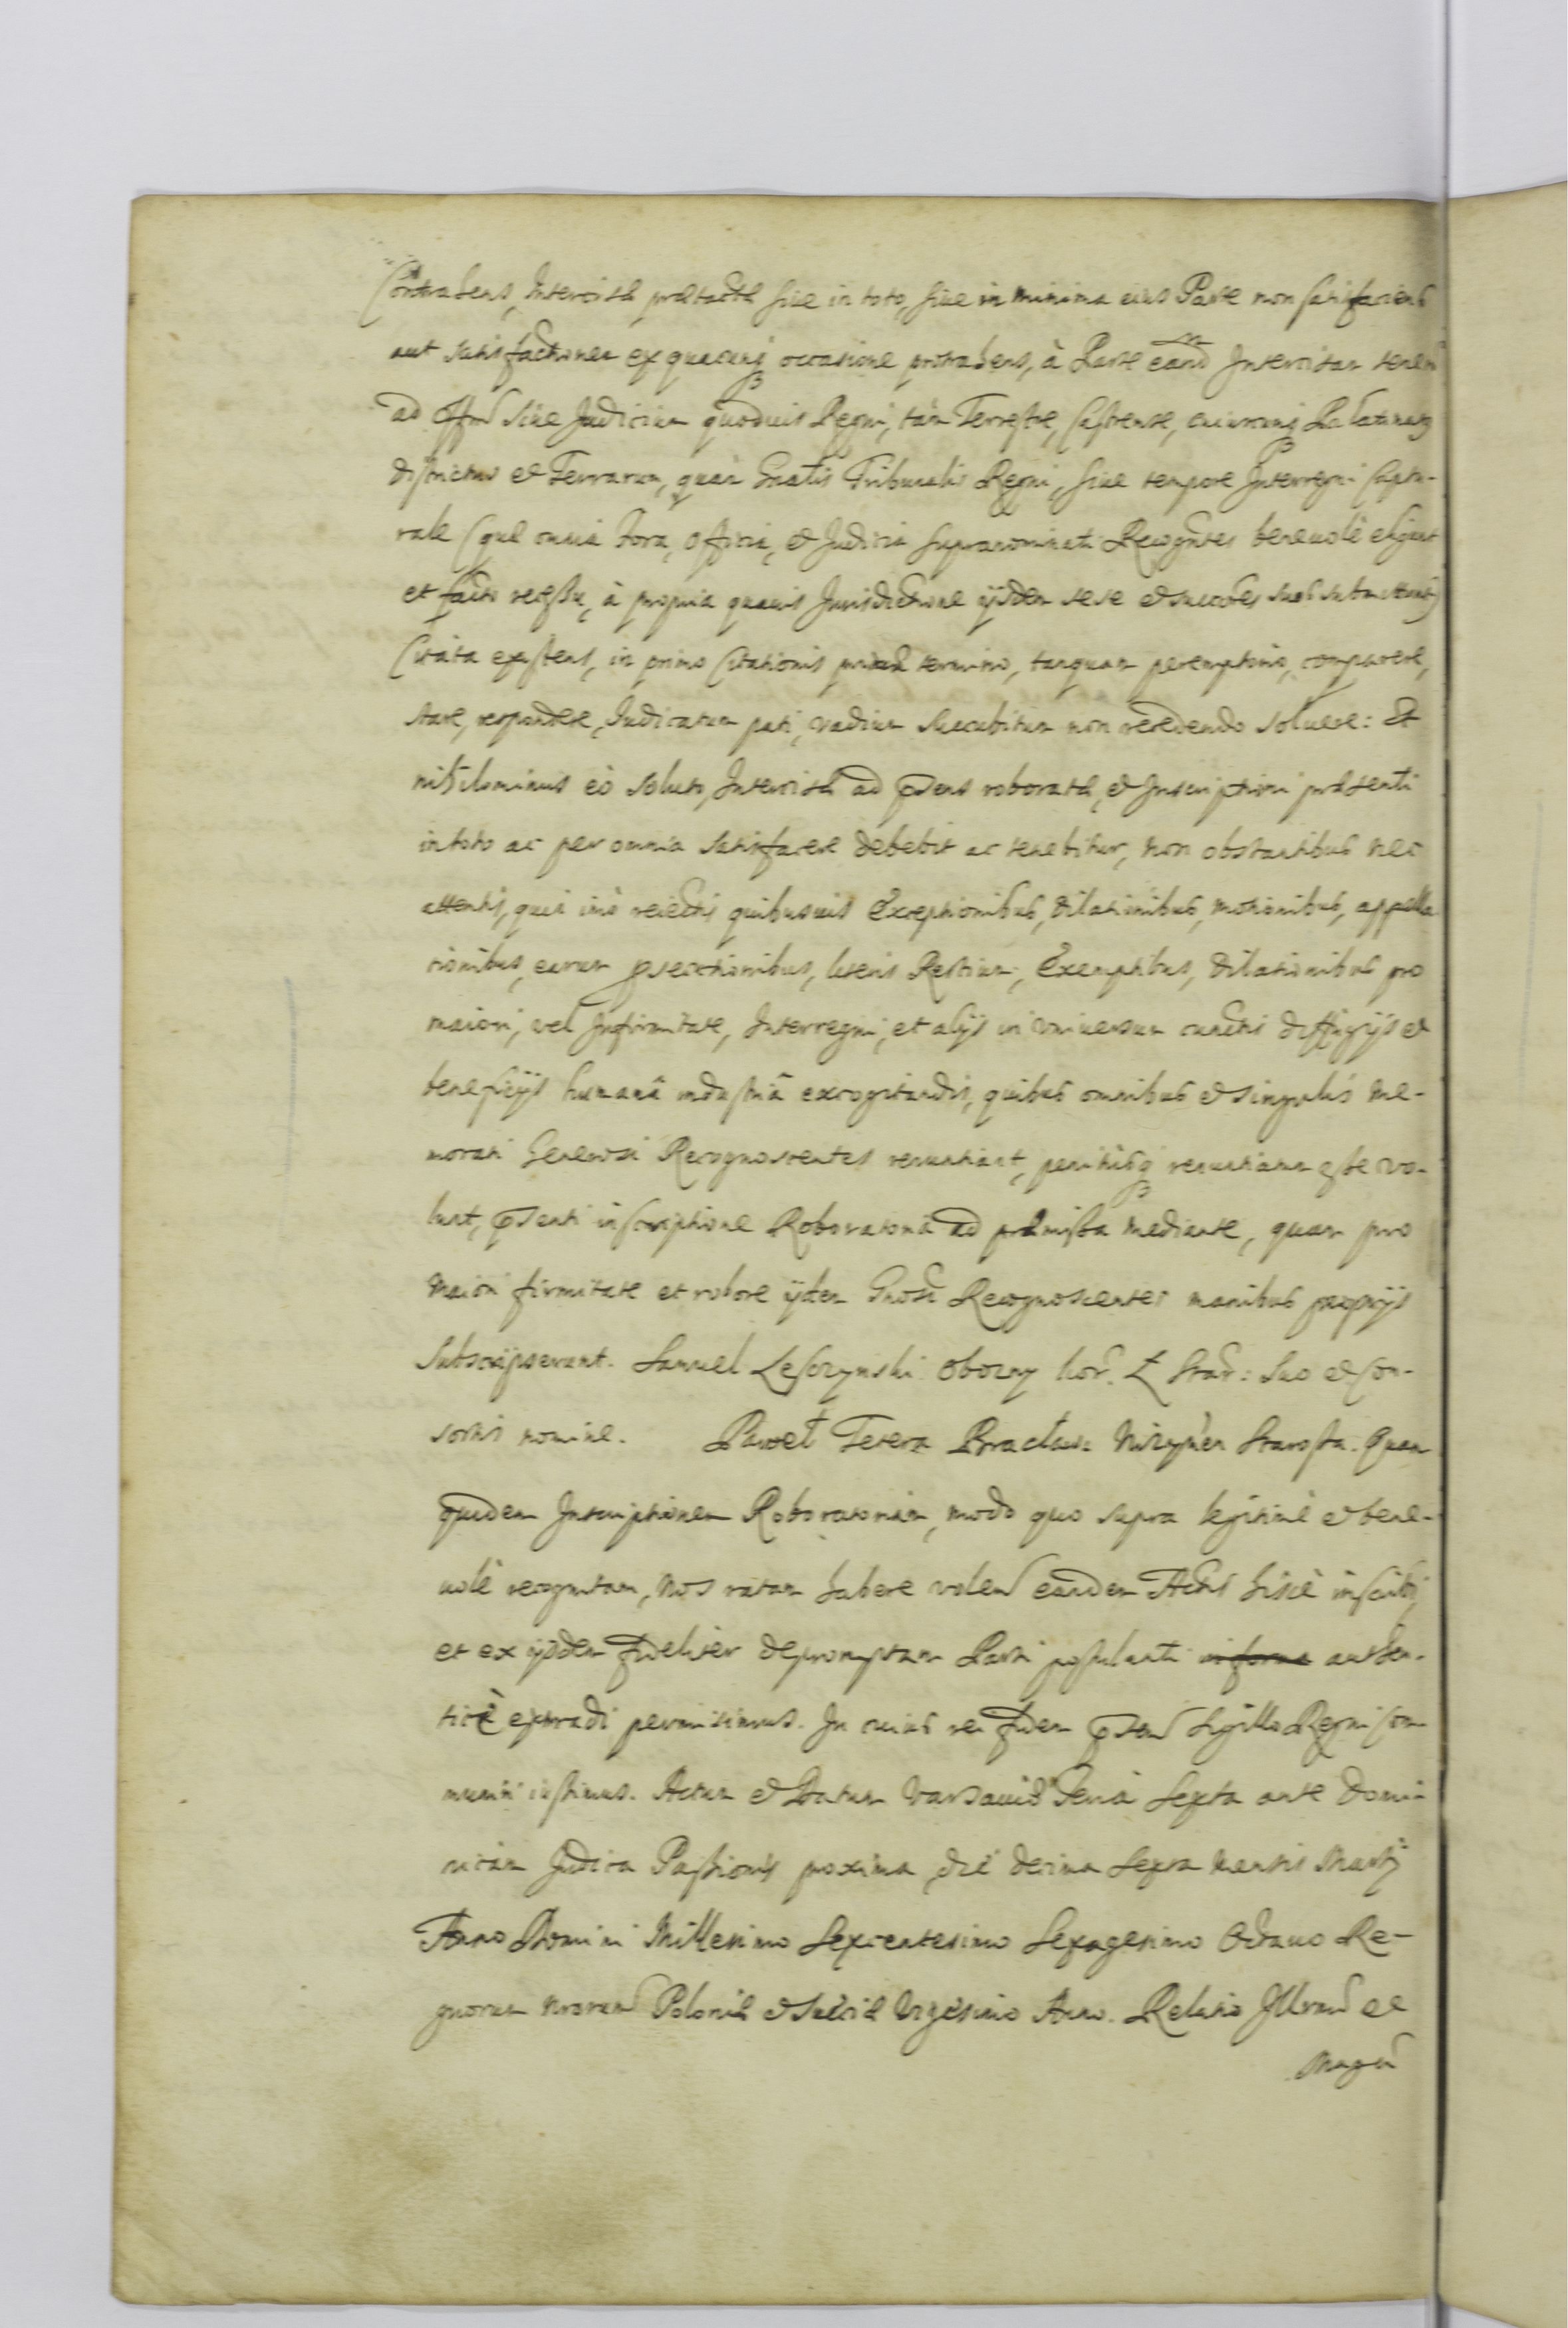 Contrahens, Intercisæ prætactæ siue in toto, siue in minima eius Parte non satisfaciens
aut satisfactionem ex quacunq occasione protrahens, à Parte eand Intercisam tenen
ad Offm siue Judicium quoduis Regni, tàm Terrestre, Castrense, cuiuscunq Palatinatus
districtus et Terrarum, quàm Gnalis Tribunalis Regni, siue tempore Interregni Captu-
rale (quæ omnia Fora, Officia, et Judicia supranominati Recogntes beneuolè eligunt
et facto recessu, à propria quauis Jurisdictione ijsdem sese et succres suos submittunt)
Citata existens, in primo Citationis termino, tanquam peremptorio, comparere,
stare, respondere, Iudicatum pati, vadium succubitum non recedendo soluere: Et
nihilominus eò soluto, Intercisæ ad psens roboratæ, et Inscriptioni præsenti
in toto ac per omnia satisfacere debebit ac tenebitur, non obstantibus nec
attentis, quin imò reiectis quibusuis Exceptionibus, dilationibus, motionibus, appella
tionibus, earum psecutionibus, literis Restium, Exemptibus, dilationibus pro
maiori, vel Infirmitate, Interregni, et alijs in vniuersum cunctis diffugijs et
beneficijs humanâ industriâ excogitandis, quibus omnibus et singulis me-
morati Generosi Recognoscentes renuntiant, penitusq renuntiatum esse vo-
lunt, psenti inscriptione Roboratoria ad præmissa mediante, quam pro
maiori firmitate et robore ijdem Gnosi Recognoscentes manibus proprijs
subscripserunt. Samuel Lesczynski Obozny Kor. Ł Star: suo et Con-
sortis nomine. Paweł Tetera Bracław: Niżyńen Starosta. Quam
quidem Inscriptionem Roboratoriam, modo quo supra legitimè et bene-
uolè recognitam, Nos ratam habere volen eandem Actis hisce inscribi,
et ex ijsdem fideliter depromptam Parti postulanti in forma authen-
ticè extradi permisimus. In cuius rei fidem psen Sigillo Regni com-
muniri iussimus. Actum et Datum Varsauiæ Feria Sexta ante Domi-
nicam Judica Passionis proxima, die decima Sexta Mensis Martij
Anno Domini Millesimo Sexcentesimo Sexagesimo Octauo Re-
gnorum nrorum Poloniæ et Sueciæ Vigesimo Anno. Relatio Illrum et
Magn